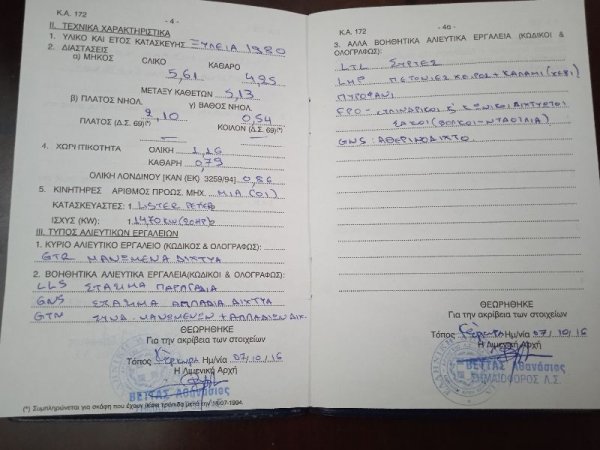 Κ.Α. 172
- 4 -
II. ΤΕΧΝΙΚΑ ΧΑΡΑΚΤΗΡΙΣΤΙΚΑ
1. ΥΛΙΚΟ ΚΑΙ ΕΤΟΣ ΚΑΤΑΣΚΕΥΗΣ ΞΥΛΕΙΑ 1980
2. ΔΙΑΣΤΑΣΕΙΣ
α) ΜΗΚΟΣ ΟΛΙΚΟ ΚΑΘΑΡΟ
5,61 4,95
ΜΕΤΑΞΥ ΚΑΘΕΤΩΝ 5,13
β) ΠΛΑΤΟΣ ΝΗΟΛ. γ) ΒΑΘΟΣ ΝΗΟΛ.
2,10 0,54
ΠΛΑΤΟΣ (Δ.Σ. 69)(*) ΚΟΙΛΟΝ (Δ.Σ. 69)(*)
4. ΧΩΡΗΤΙΚΟΤΗΤΑ ΟΛΙΚΗ 1,16
ΚΑΘΑΡΗ 0,79
ΟΛΙΚΗ ΛΟΝΔΙΝΟΥ [ΚΑΝ (ΕΚ) 3259/94] 0,86
5. ΚΙΝΗΤΗΡΕΣ ΑΡΙΘΜΟΣ ΠΡΟΩΣ. ΜΗΧ. ΜΙΑ (01)
ΚΑΤΑΣΚΕΥΑΣΤΕΣ: 1. LISTER PETER
ΙΣΧΥΣ (KW): 1. 14,70 KW (20HP)
III. ΤΥΠΟΣ ΑΛΙΕΥΤΙΚΩΝ ΕΡΓΑΛΕΙΩΝ
1. ΚΥΡΙΟ ΑΛΙΕΥΤΙΚΟ ΕΡΓΑΛΕΙΟ (ΚΩΔΙΚΟΣ & ΟΛΟΓΡΑΦΩΣ):
GTR ΜΑΝΩΜΕΝΑ ΔΙΧΤΥΑ
2. ΒΟΗΘΗΤΙΚΑ ΑΛΙΕΥΤΙΚΑ ΕΡΓΑΛΕΙΑ(ΚΩΔΙΚΟΙ & ΟΛΟΓΡΑΦΩΣ):
LLS ΣΤΑΣΙΜΑ ΠΑΡΑΓΑΔΙΑ
GNS ΣΤΑΣΙΜΑ ΑΠΛΑΔΙΑ ΔΙΧΤΥΑ
GTN ΣΥΝΔ. ΜΑΝΩΜΕΝΩΝ + ΑΠΛΑΔΙΩΝ ΔΙΚ.
ΘΕΩΡΗΘΗΚΕ
Για την ακρίβεια των στοιχείων
Τόπος Κέρκυρα Ημ/νία 07/10/16
Η Λιμενική Αρχή
ΒΕΤΤΑΣ Αθανάσιος
(*) Συμπληρώνεται για σκάφη που έχουν θέσει τρόπιδα μετά την 18-07-1994.
Κ.Α. 172
- 4α -
3. ΑΛΛΑ ΒΟΗΘΗΤΙΚΑ ΑΛΙΕΥΤΙΚΑ ΕΡΓΑΛΕΙΑ (ΚΩΔΙΚΟΙ &
ΟΛΟΓΡΑΦΩΣ):
LTL ΣΥΡΤΕΣ
LHP ΠΕΤΟΝΙΕΣ ΧΕΙΡΟΣ + ΚΑΛΑΜΙ
ΠΥΡΟΦΑΝΙ
FPO - ΚΥΛΙΝΔΡΙΚΟΙ & ΚΩΝΙΚΟΙ ΔΙΧΤΥΩΤΟΙ
ΣΑΚΟΙ (ΒΟΛΚΟΙ - ΝΤΑΟΥΛΙΑ)
GNS: ΑΘΕΡΙΝΟΔΙΧΤΟ
ΘΕΩΡΗΘΗΚΕ
Για την ακρίβεια των στοιχείων
Τόπος Κέρκυρα Ημ/νία 07/10/16
Η Λιμενική Αρχή
ΒΕΤΤΑΣ Αθανάσιος
ΣΗΜΑΙΟΦΟΡΟΣ Λ.Σ.